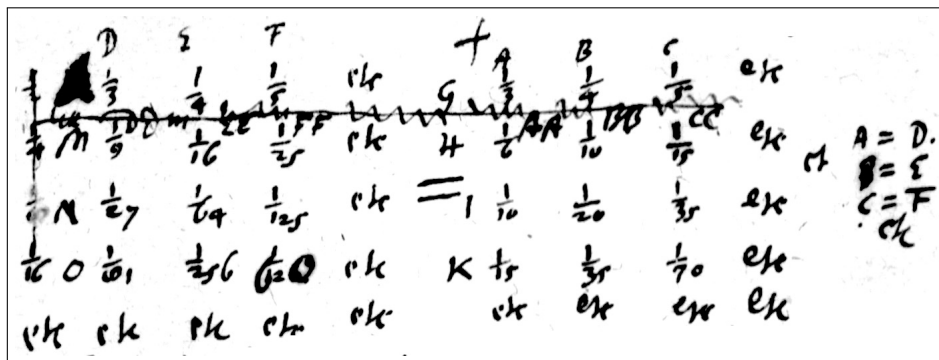 D E F + A B C
1/3 1/4 1/5 etc G 1/3 1/4 1/5 etc
M 1/9 DD 1/16 EE 1/25 FF etc H 1/6 AA 1/10 BB 1/15 CC etc
et A = D.
B = E
C = F
etc
N 1/27 1/64 1/125 etc = I 1/10 1/20 1/35 etc
1/16 O 1/81 1/256 etc K 1/15 1/35 1/70 etc
etc etc etc etc etc etc etc etc etc